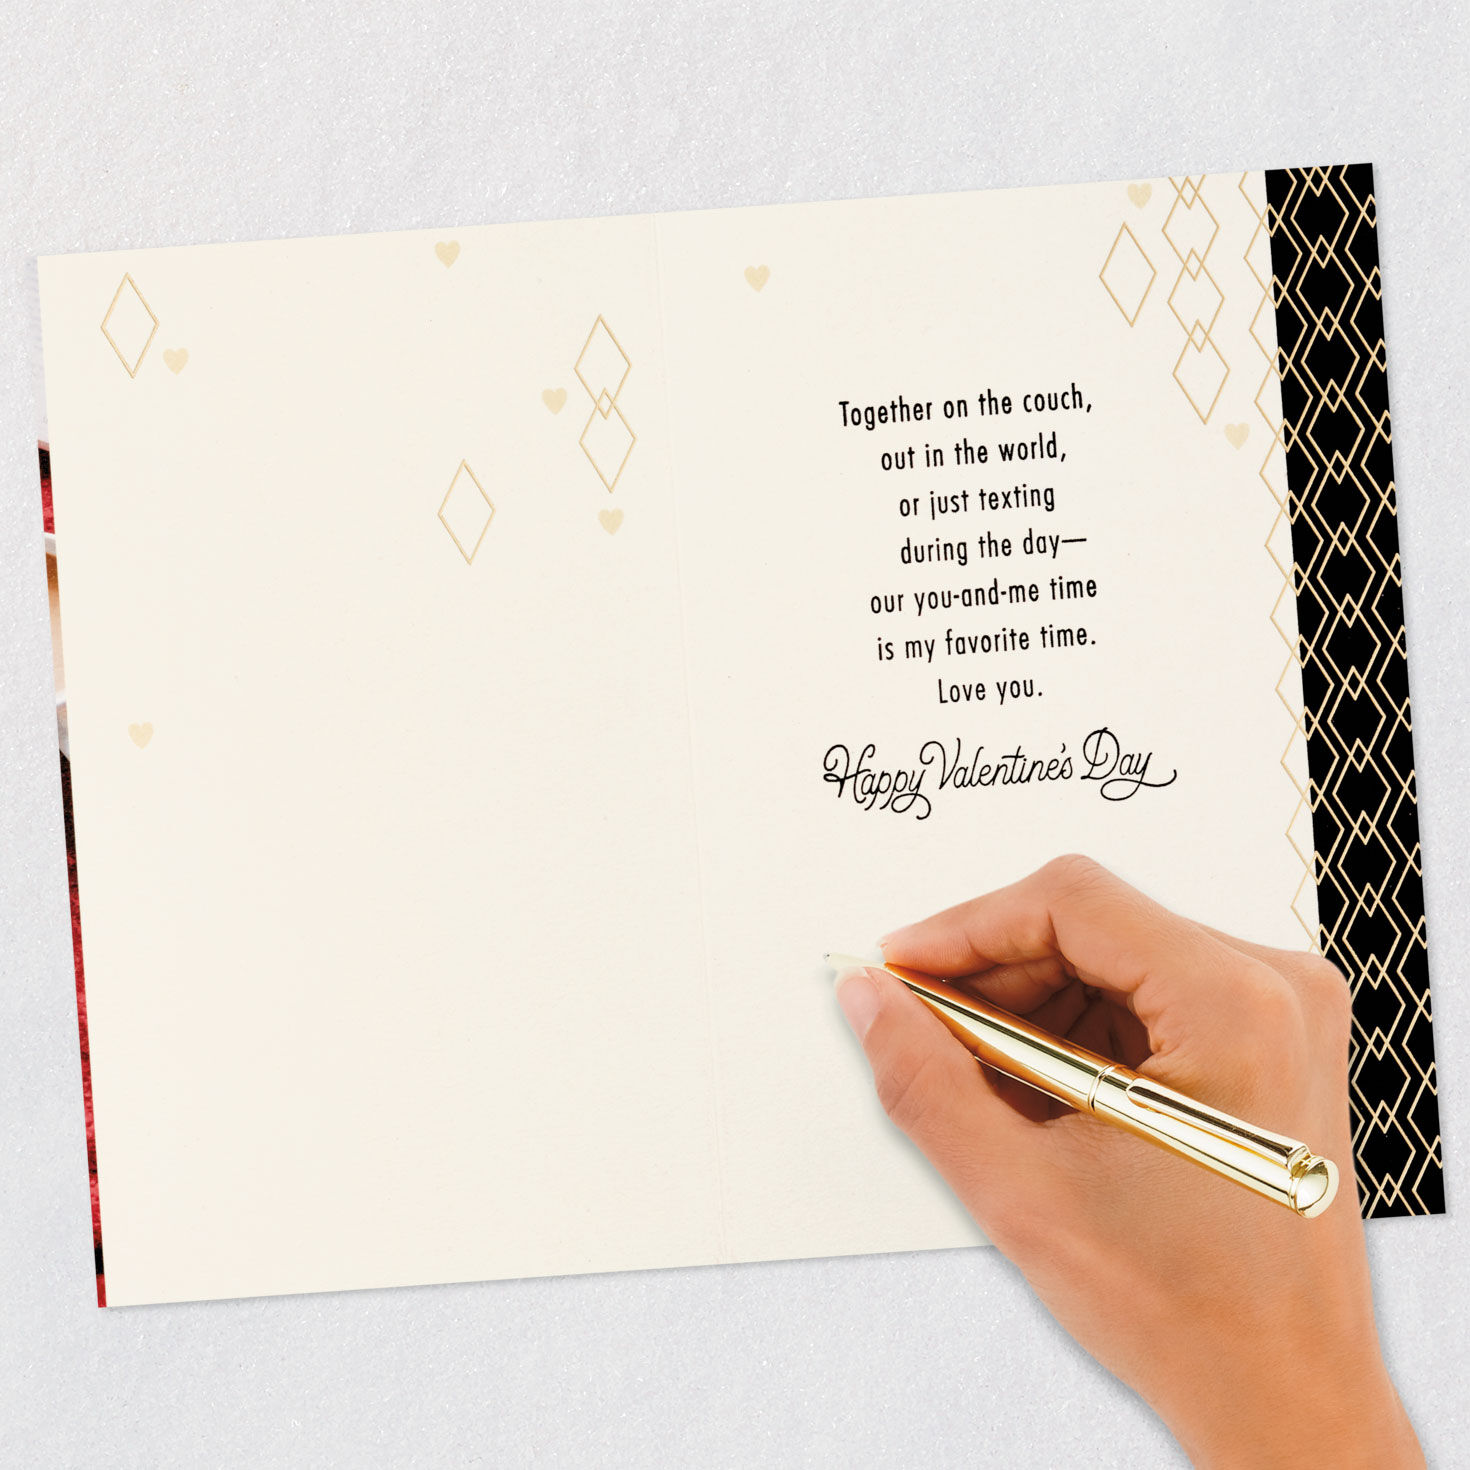 Together on the couch,
out in the world,
or just texting
during the day—
our you-and-me time
is my favorite time.
Love you.
Happy Valentine's Day